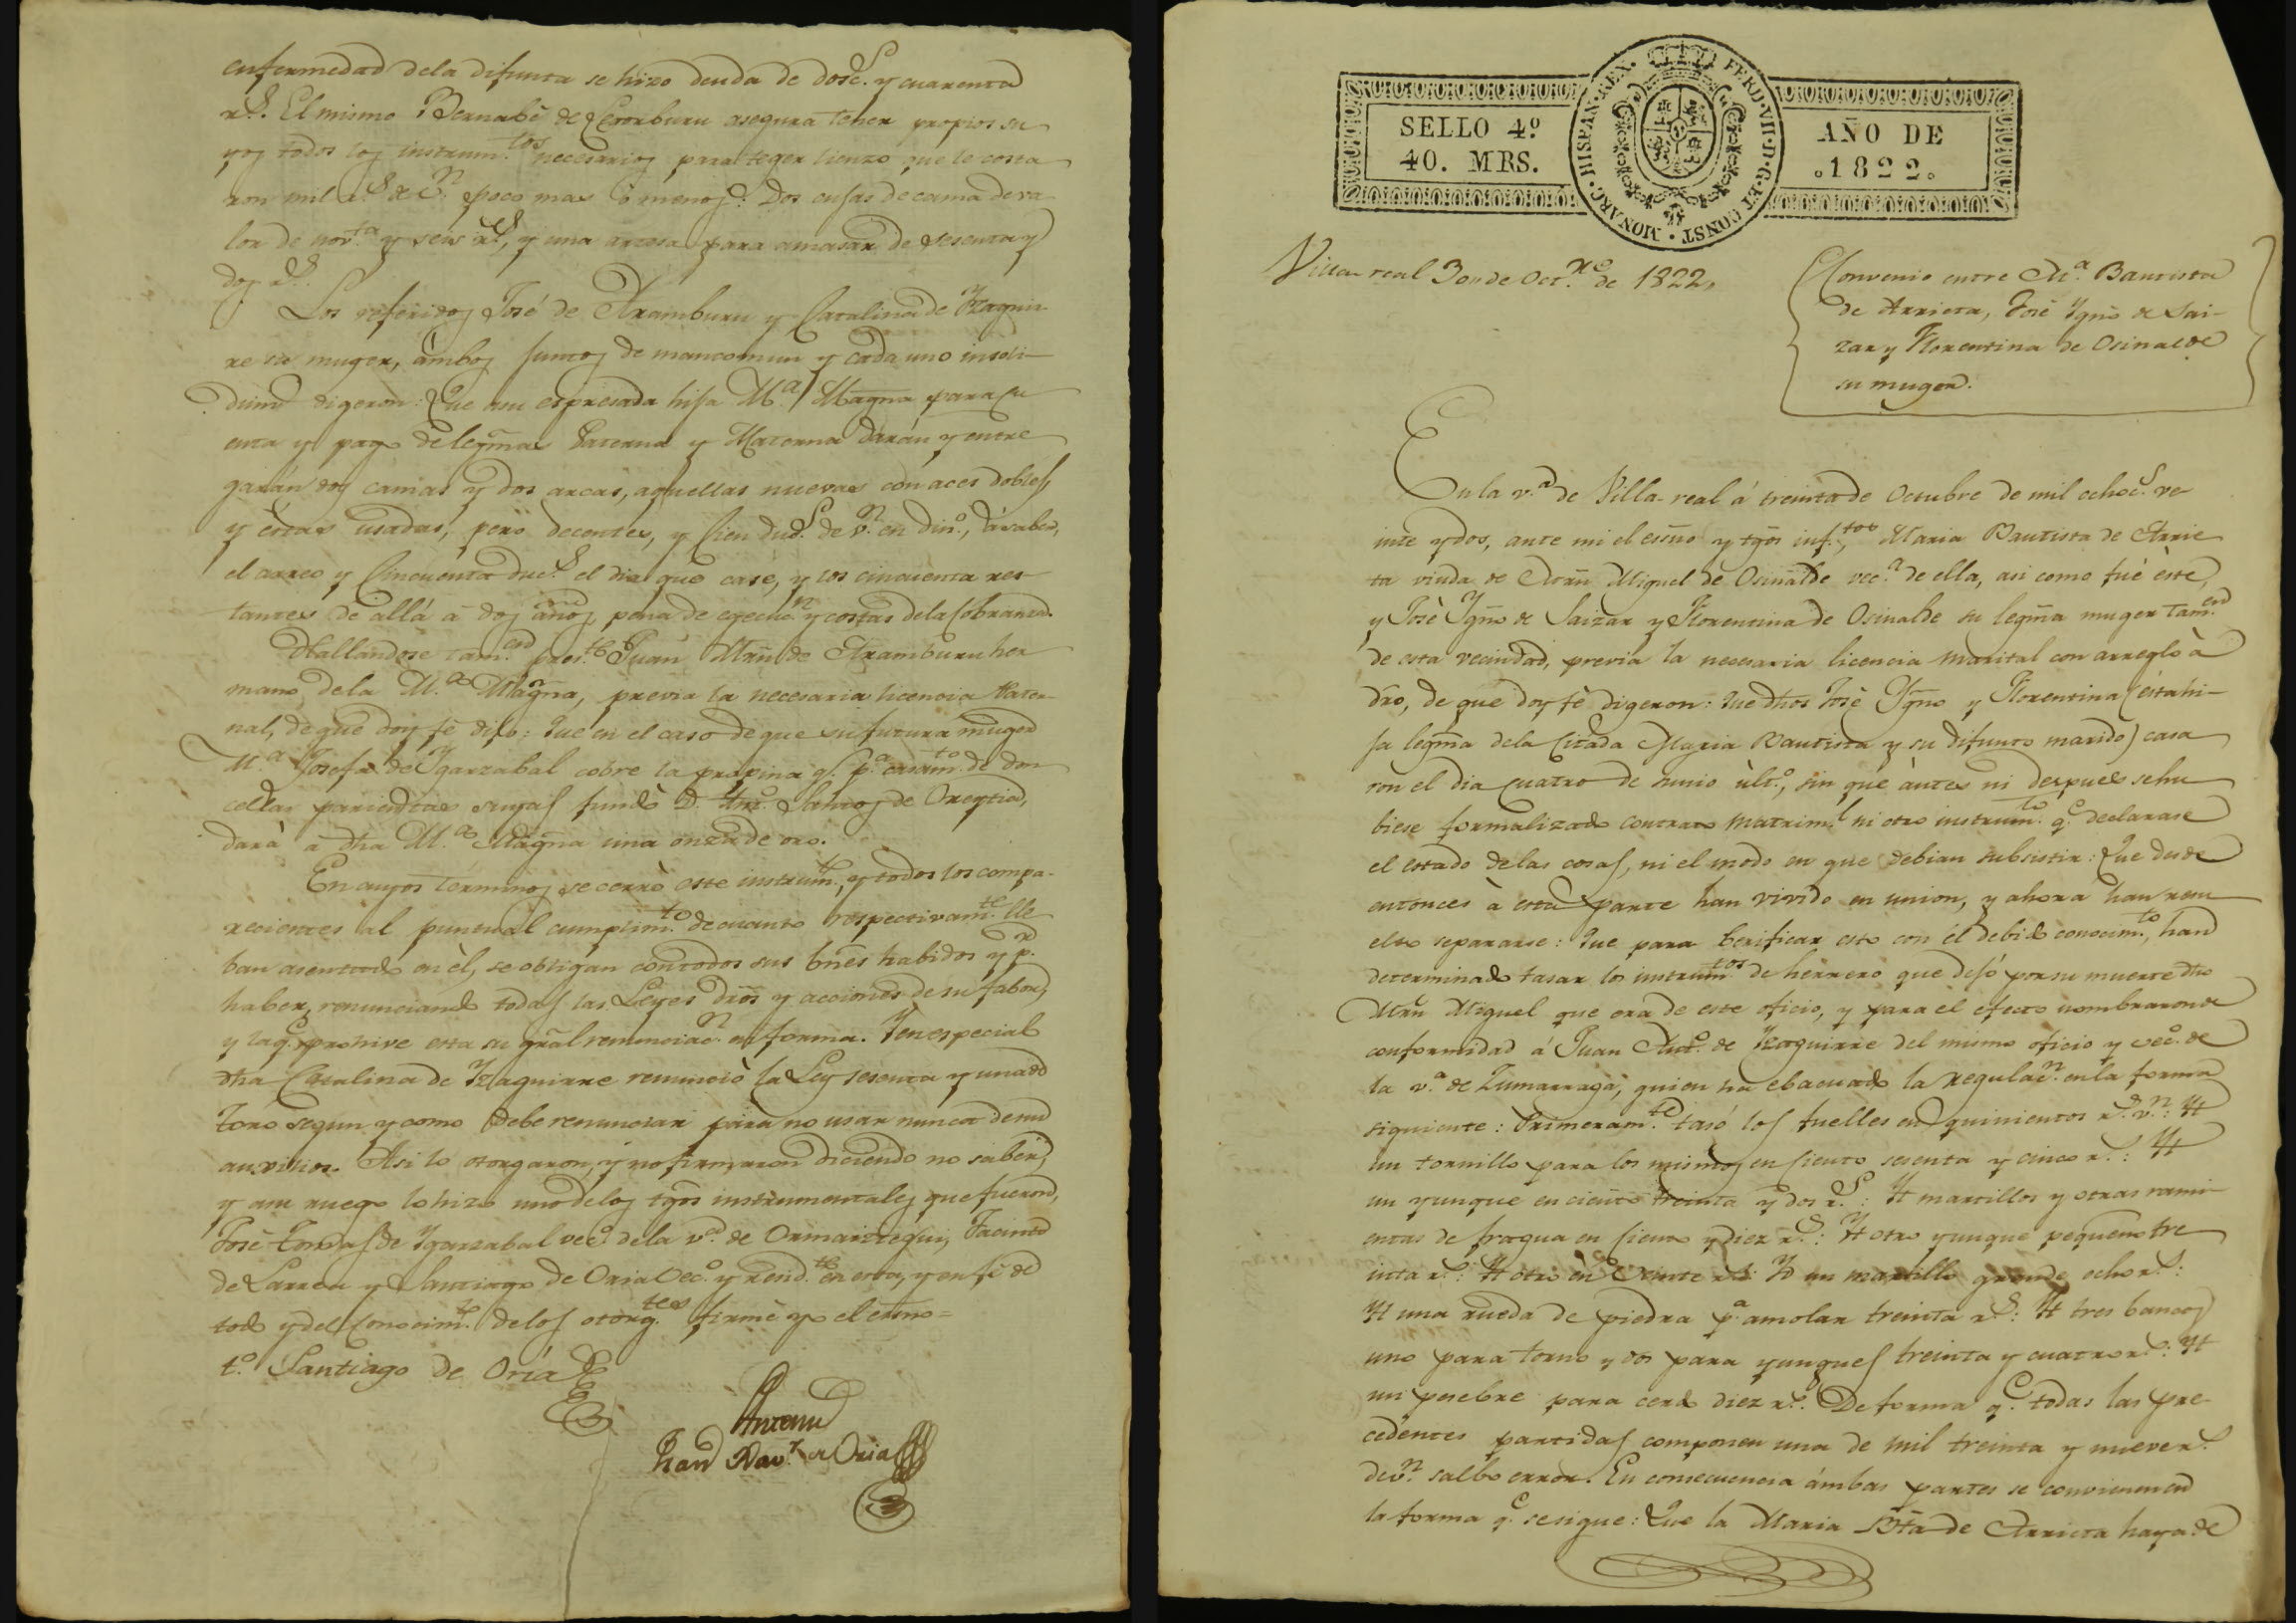 enfermedad dela difunta se hizo deuda de dosc.s y cuarenta
r.s. El mismo Bernabé de asegura tener propios su
yos todos los instrum.tos necesarios para teger lienzo que le costa
ron mil r.s de v.n poco mas ó menos. Dos cujas de cama de va
lor de nov.ta y seis r.s, y una artesa para amasar de sesenta y
dos r.s.
Los referidos José de Aramburu y Catalina de Yzaguir-
re su muger, ámbos juntos de mancomun y cada uno insoli-
dum digeron: Que asu espresada hija M.a Magna para cu
enta y pago de legmas Paterna y Materna darán y entre
garán dos camas y dos arcas, aquellas nuevas con aces dobles,
y éstas usadas, pero decentes, y cien duc.s de v.n en din.o, á saber,
el arreo y Cincuenta duc.s el dia que case, y los cincuenta res-
tantes de allá á dos años, pena de egecuc.n y costas dela cobranza.
Hallandose tam.en pres.te Juan Mrn de Aramburu her
mano dela M.a Magna, previa la necesaria licencia Pater-
nal, de que doy fé dijo: Que en el caso de que su futura muger
M.a Josefa de Ygarzabal cobre la propina q.e p.a casam.to de don
cellas parientas suyas fundó D. Ant.o Santos de Oreytia,
dará á dha M.a Magna una onza de oro.
En cuyos terminos se cerró este instrum.to, y todos los compa-
recientes al puntual cumplim.to de cuanto respectivam.te lle
ban asentado en él, se obligan contodos sus bnes habidos y p.r
haber, renunciando todas las Leyes dros y acciones de su fabor,
y la q.e prohive esta su gral renunciac.n en forma. Y en especial
dha Catalina de Yzaguirre renunció la Ley sesenta y una de
Toro segun y como debe renunciar para no usar nunca de su
auxilio. Asi lo otorgaron, y no firmaron diciendo no saber,
y asu ruego lo hizo uno delos tgos instrumentales que fueron,
José Tomas de Ygarzabal vec.o dela v.a de Ormaiztegui, Jacinto
de Larrea y Santiago de Oria vec.o y resid.te en esta, y en fé de
todo y del Conocim.to delos otorg.tes firmé yo el esno=
t.o Santiago de Oria
Antemi
Juan Bau.ta de Oria
SELLO 4.º
40. MRS.
HISPAN·REX· FERD·VII·D·G·ET CONST · MONARC·
AÑO DE
.1822.
Villa-real 30,, de Oct.re de 1822,
Convenio entre M.a Bautista
de Arrieta, José Ygno de Sai-
zar y Florentina de Osinalde
su muger.
En la v.a de Villa-real á treinta de Octubre de mil ochoc.s ve
inte y dos, ante mi el esno y tgos inf.tos, Maria Bautista de Arrie
ta viuda de Mrn Miguel de Osinalde vec.a de ella, asi como fué éste,
y José Ygno de Saizar y Florentina de Osinalde su legma muger tam.en
de esta vecindad, previa la necesaria licencia marital con arreglo á
dro, de que doy fé digeron: Que dhos José Ygno y Florentina (ésta hi-
ja legma dela citada Maria Bautista y su difunto marido) casa
ron el dia cuatro de Junio últ.o, sin que ántes ni despues se hu
biese formalizado contrato matrim.l ni otro instrum.to q.e declarase
el estado de las cosas, ni el modo en que debian subsistir: Que desde
entonces á esta parte han vivido en union, y ahora han resu
elto separarse: Que para berificar esto con el debido conocim.to, han
determinado tasar los instrum.tos de herrero que dejó por su muerte dho
Mrn Miguel que era de este oficio, y para el efecto nombraron de
conformidad á Juan Ant.o de Yzaguirre del mismo oficio y vec.o de
la v.a de Zumarraga, quien ha ebacuado la regulac.n en la forma
siguiente: Primeram.te tasó los fuelles en quinientos r.s v.n: Yt
un tornillo para los mismos en ciento sesenta y cinco r.s: Yt
un yunque en ciento treinta y dos r.s: Yt martillos y otras rami-
entas de fragua en ciento y diez r.s: Yt otro yunque pequeño tre
inta r.s: Yt otro en veinte r.s: Yt un martillo grande ocho r.s:
Yt una rueda de piedra p.a amolar treinta r.s: Yt tres bancos
uno para torno y dos para yunques treinta y cuatro r.s: Yt
un pesebre para cerdo diez r.s. De forma q.e todas las pre-
cedentes partidas componen una de mil treinta y nueve r.s
de v.n salbo error. En consecuencia ámbas partes se convienen en
la forma q.e se sigue: Que la Maria Bta de Arrieta haya de